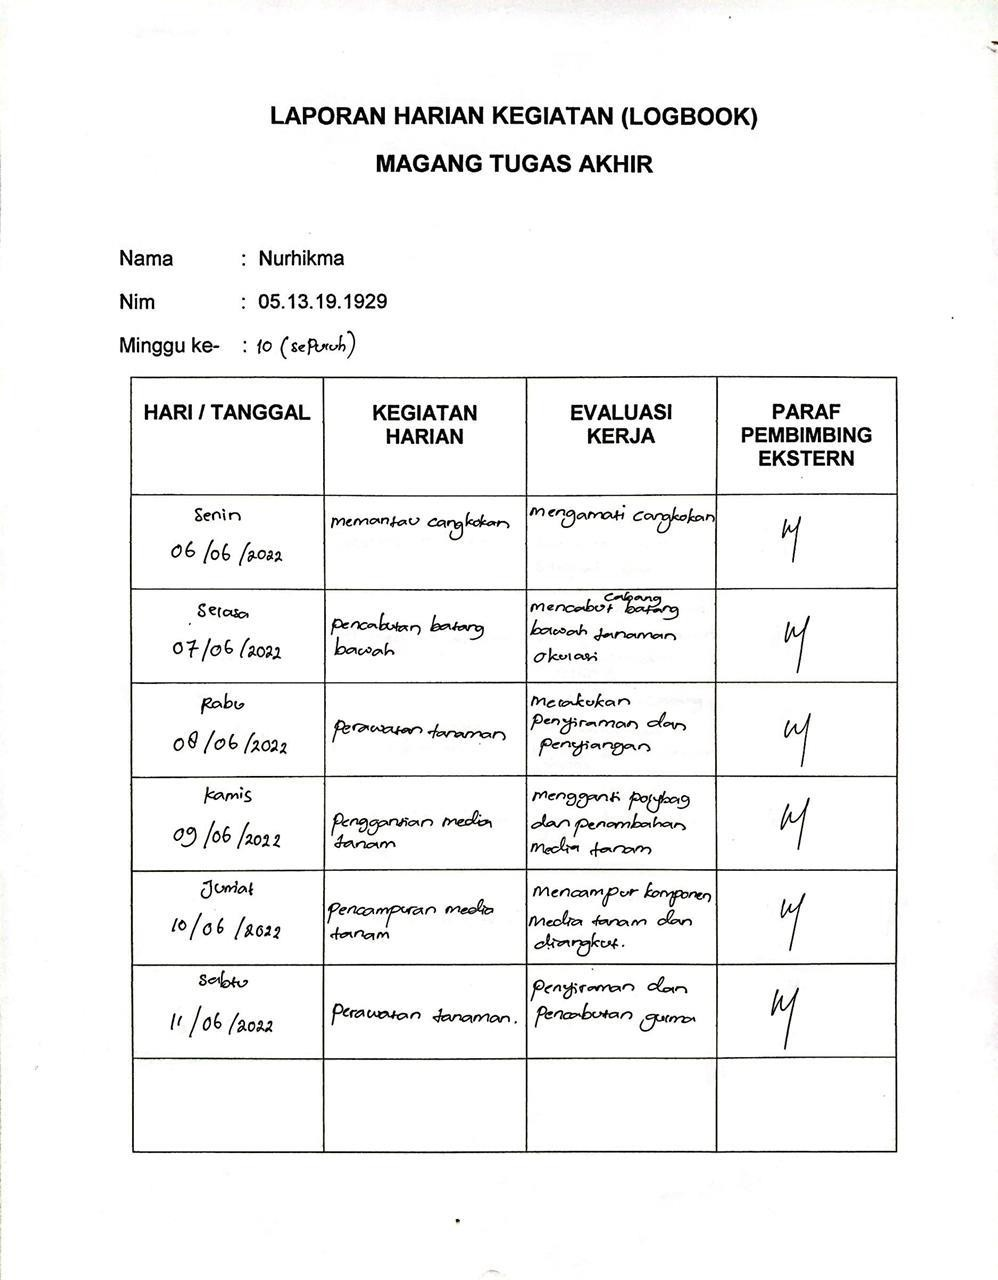 LAPORAN HARIAN KEGIATAN (LOGBOOK)
MAGANG TUGAS AKHIR
Nama : Nurhikma
Nim : 05.13.19.1929
Minggu ke- : 10 (sepuluh)
HARI / TANGGAL
KEGIATAN
HARIAN
EVALUASI
KERJA
PARAF
PEMBIMBING
EKSTERN
Senin
06/06/2022
memantau cangkokan
mengamati cangkokan
Selasa
07/06/2022
pencabutan batang
bawah
cabang
mencabut batang
bawah tanaman
okulasi
Rabu
08/06/2022
perawatan tanaman
melakukan
penyiraman dan
penyiangan
Kamis
09/06/2022
penggantian media
tanam
mengganti polybag
dan penambahan
media tanam
Jumat
10/06/2022
pencampuran media
tanam
mencampur komponen
media tanam dan
diangkut.
Sabtu
11/06/2022
perawatan tanaman.
penyiraman dan
pencabutan gulma